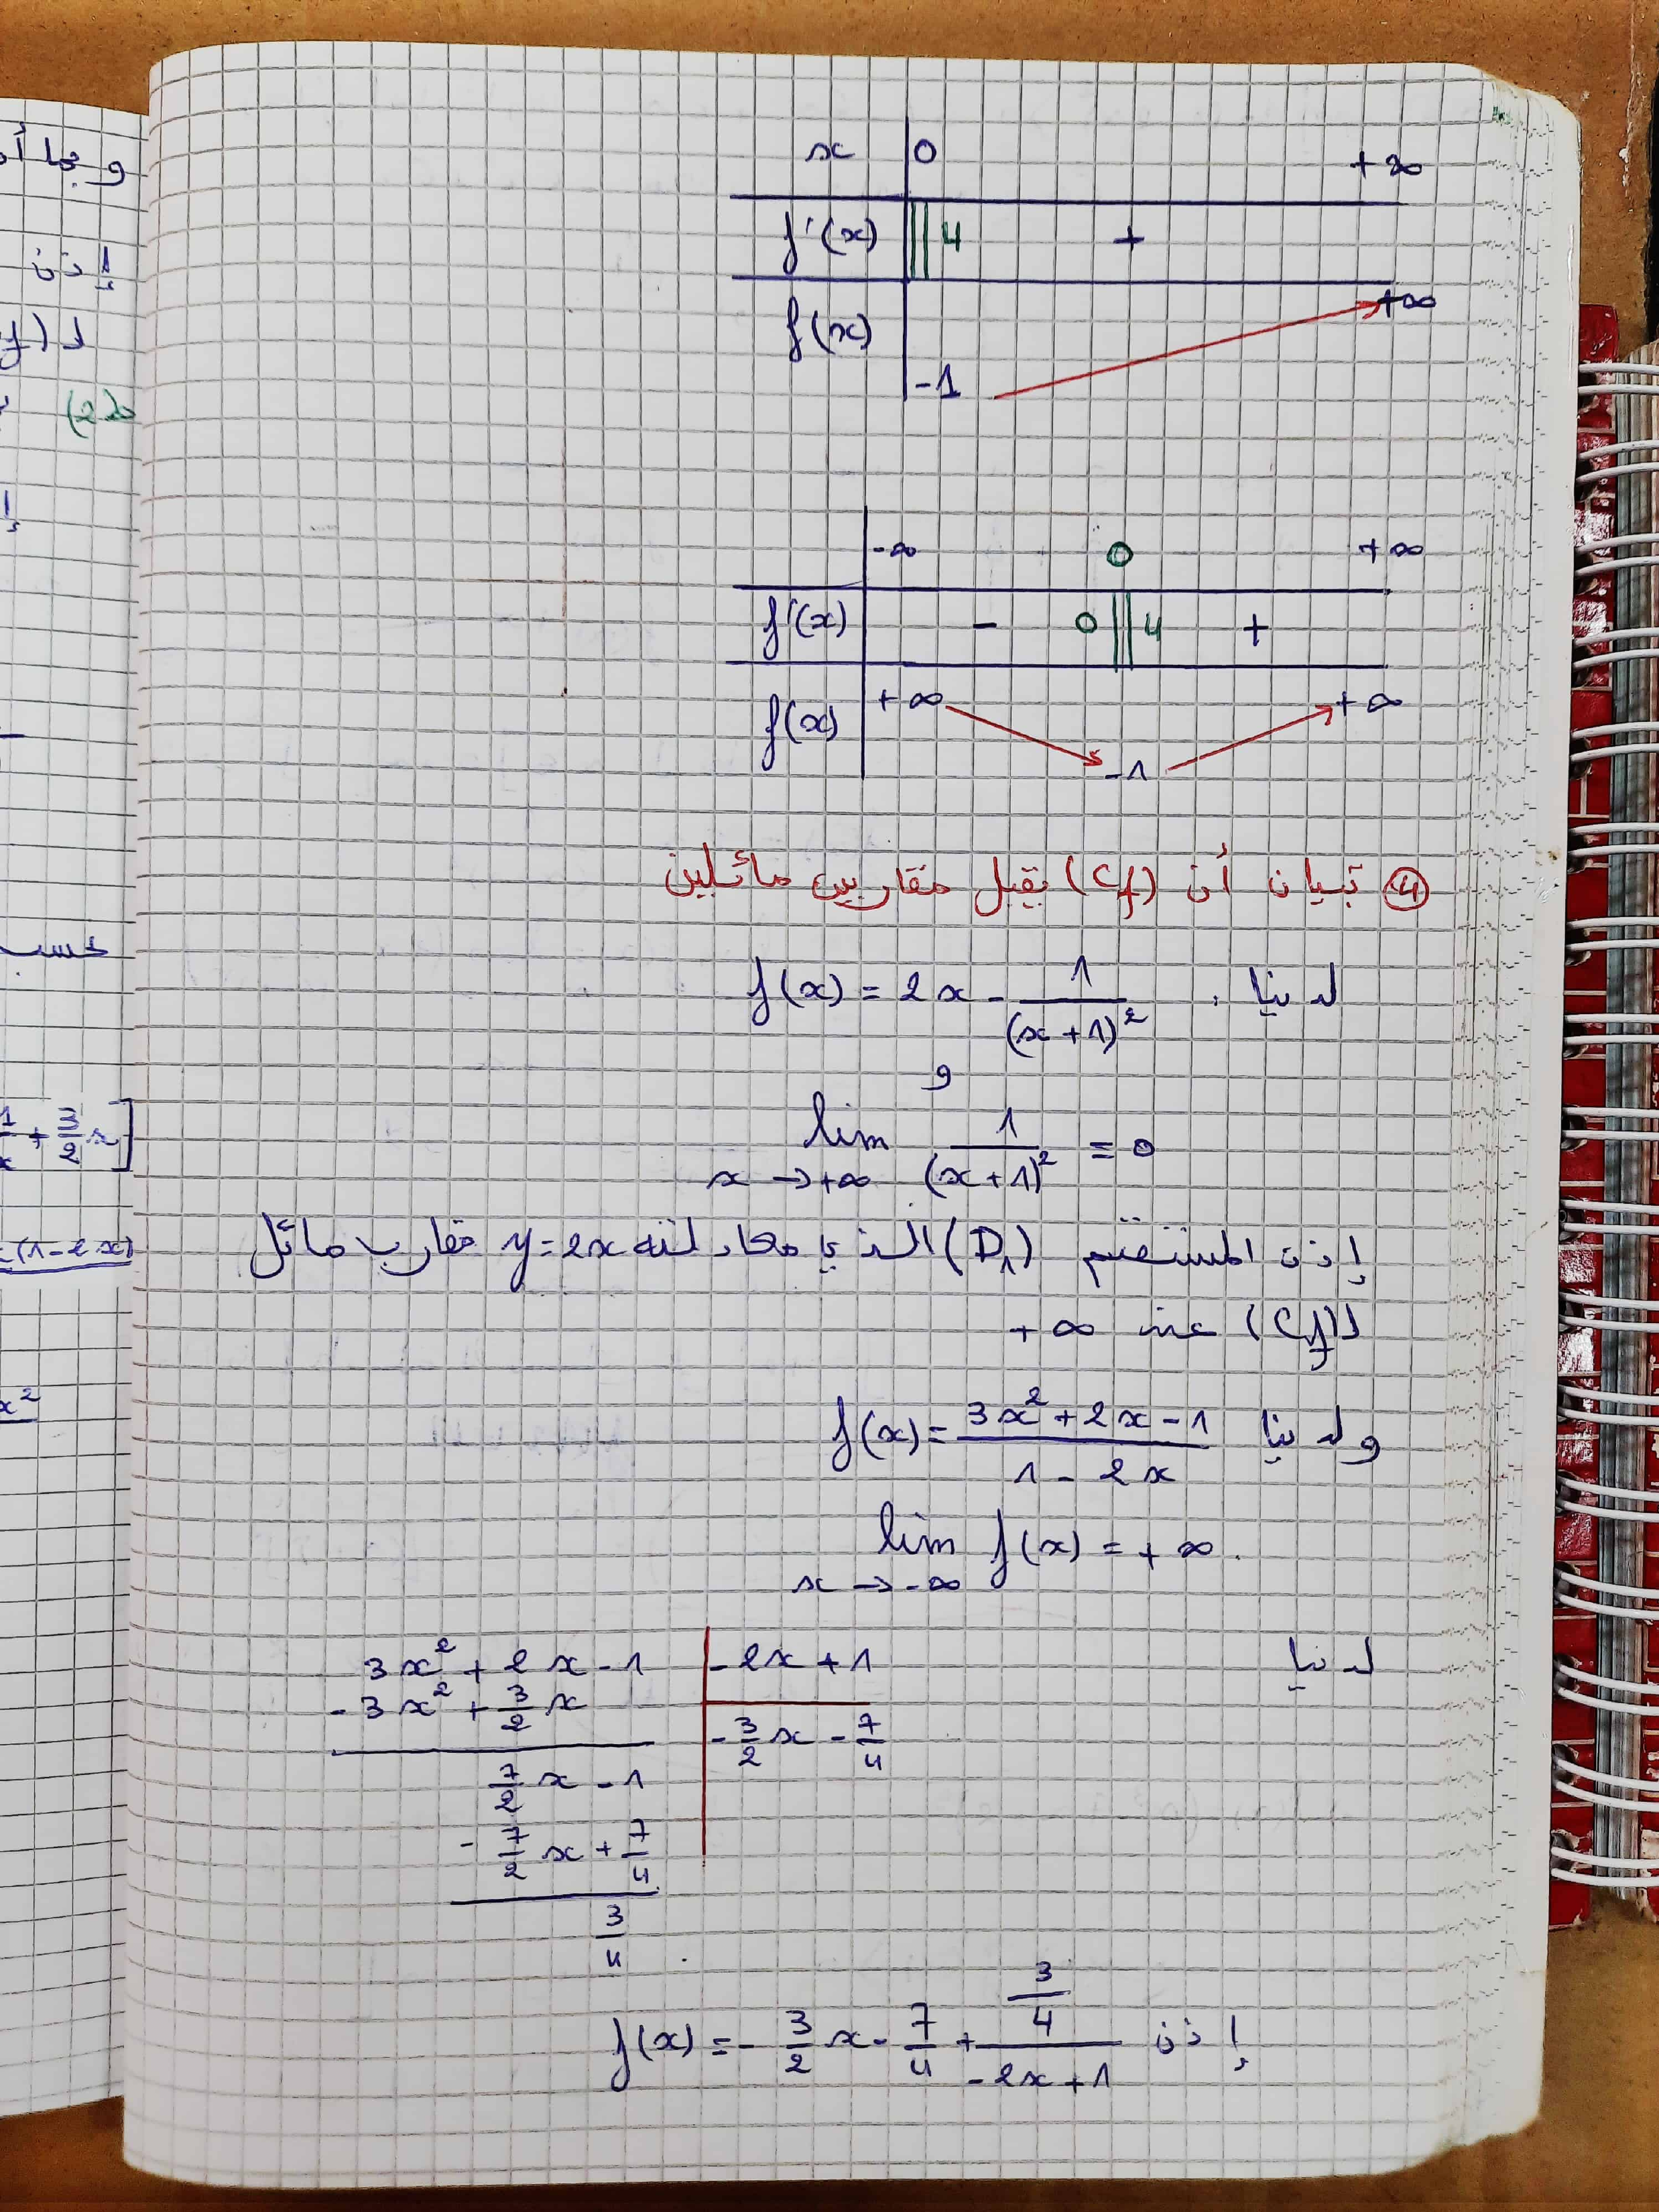 x 0 +∞
f'(x) || 4 +
f(x) -1 +∞
-∞ 0 +∞
f'(x) - 0 || 4 +
f(x) +∞ -1 +∞
④ تبيان أن (Cf) يقبل مقاربين مائلين
لدينا : f(x) = 2x - 1/(x+1)²
و
lim x→+∞ 1/(x+1)² = 0
إذن المستقيم (D₁) الذي معادلته y=2x مقارب مائل
لـ (Cf) عند +∞
ولدينا f(x) = (3x²+2x-1)/(1-2x)
lim x→-∞ f(x) = +∞.
لدينا
3x² + 2x - 1 | -2x + 1
-3x² + 3/2 x | -3/2 x - 7/4
7/2 x - 1
- 7/2 x + 7/4
3/4
إذن f(x) = - 3/2 x - 7/4 + (3/4)/(-2x+1)
إذن
حسب
1/x + 3/2 x]
(1-2x)
x²